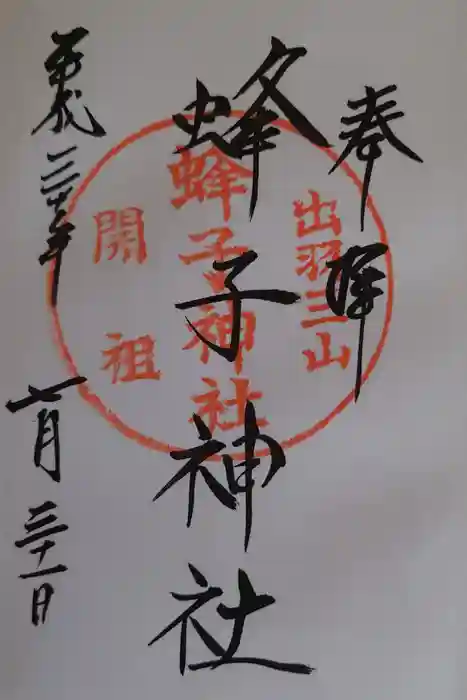 奉拝
出羽三山
蜂子神社
蜂子神社
開祖
平成
年
七月三十一日